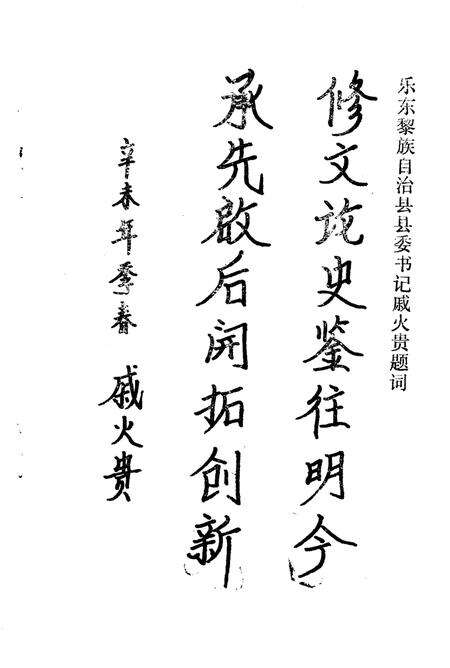 乐东黎族自治县县委书记戚火贵题词
修文论史鉴往明今
承先啟后開拓创新
辛未年季春 戚火贵